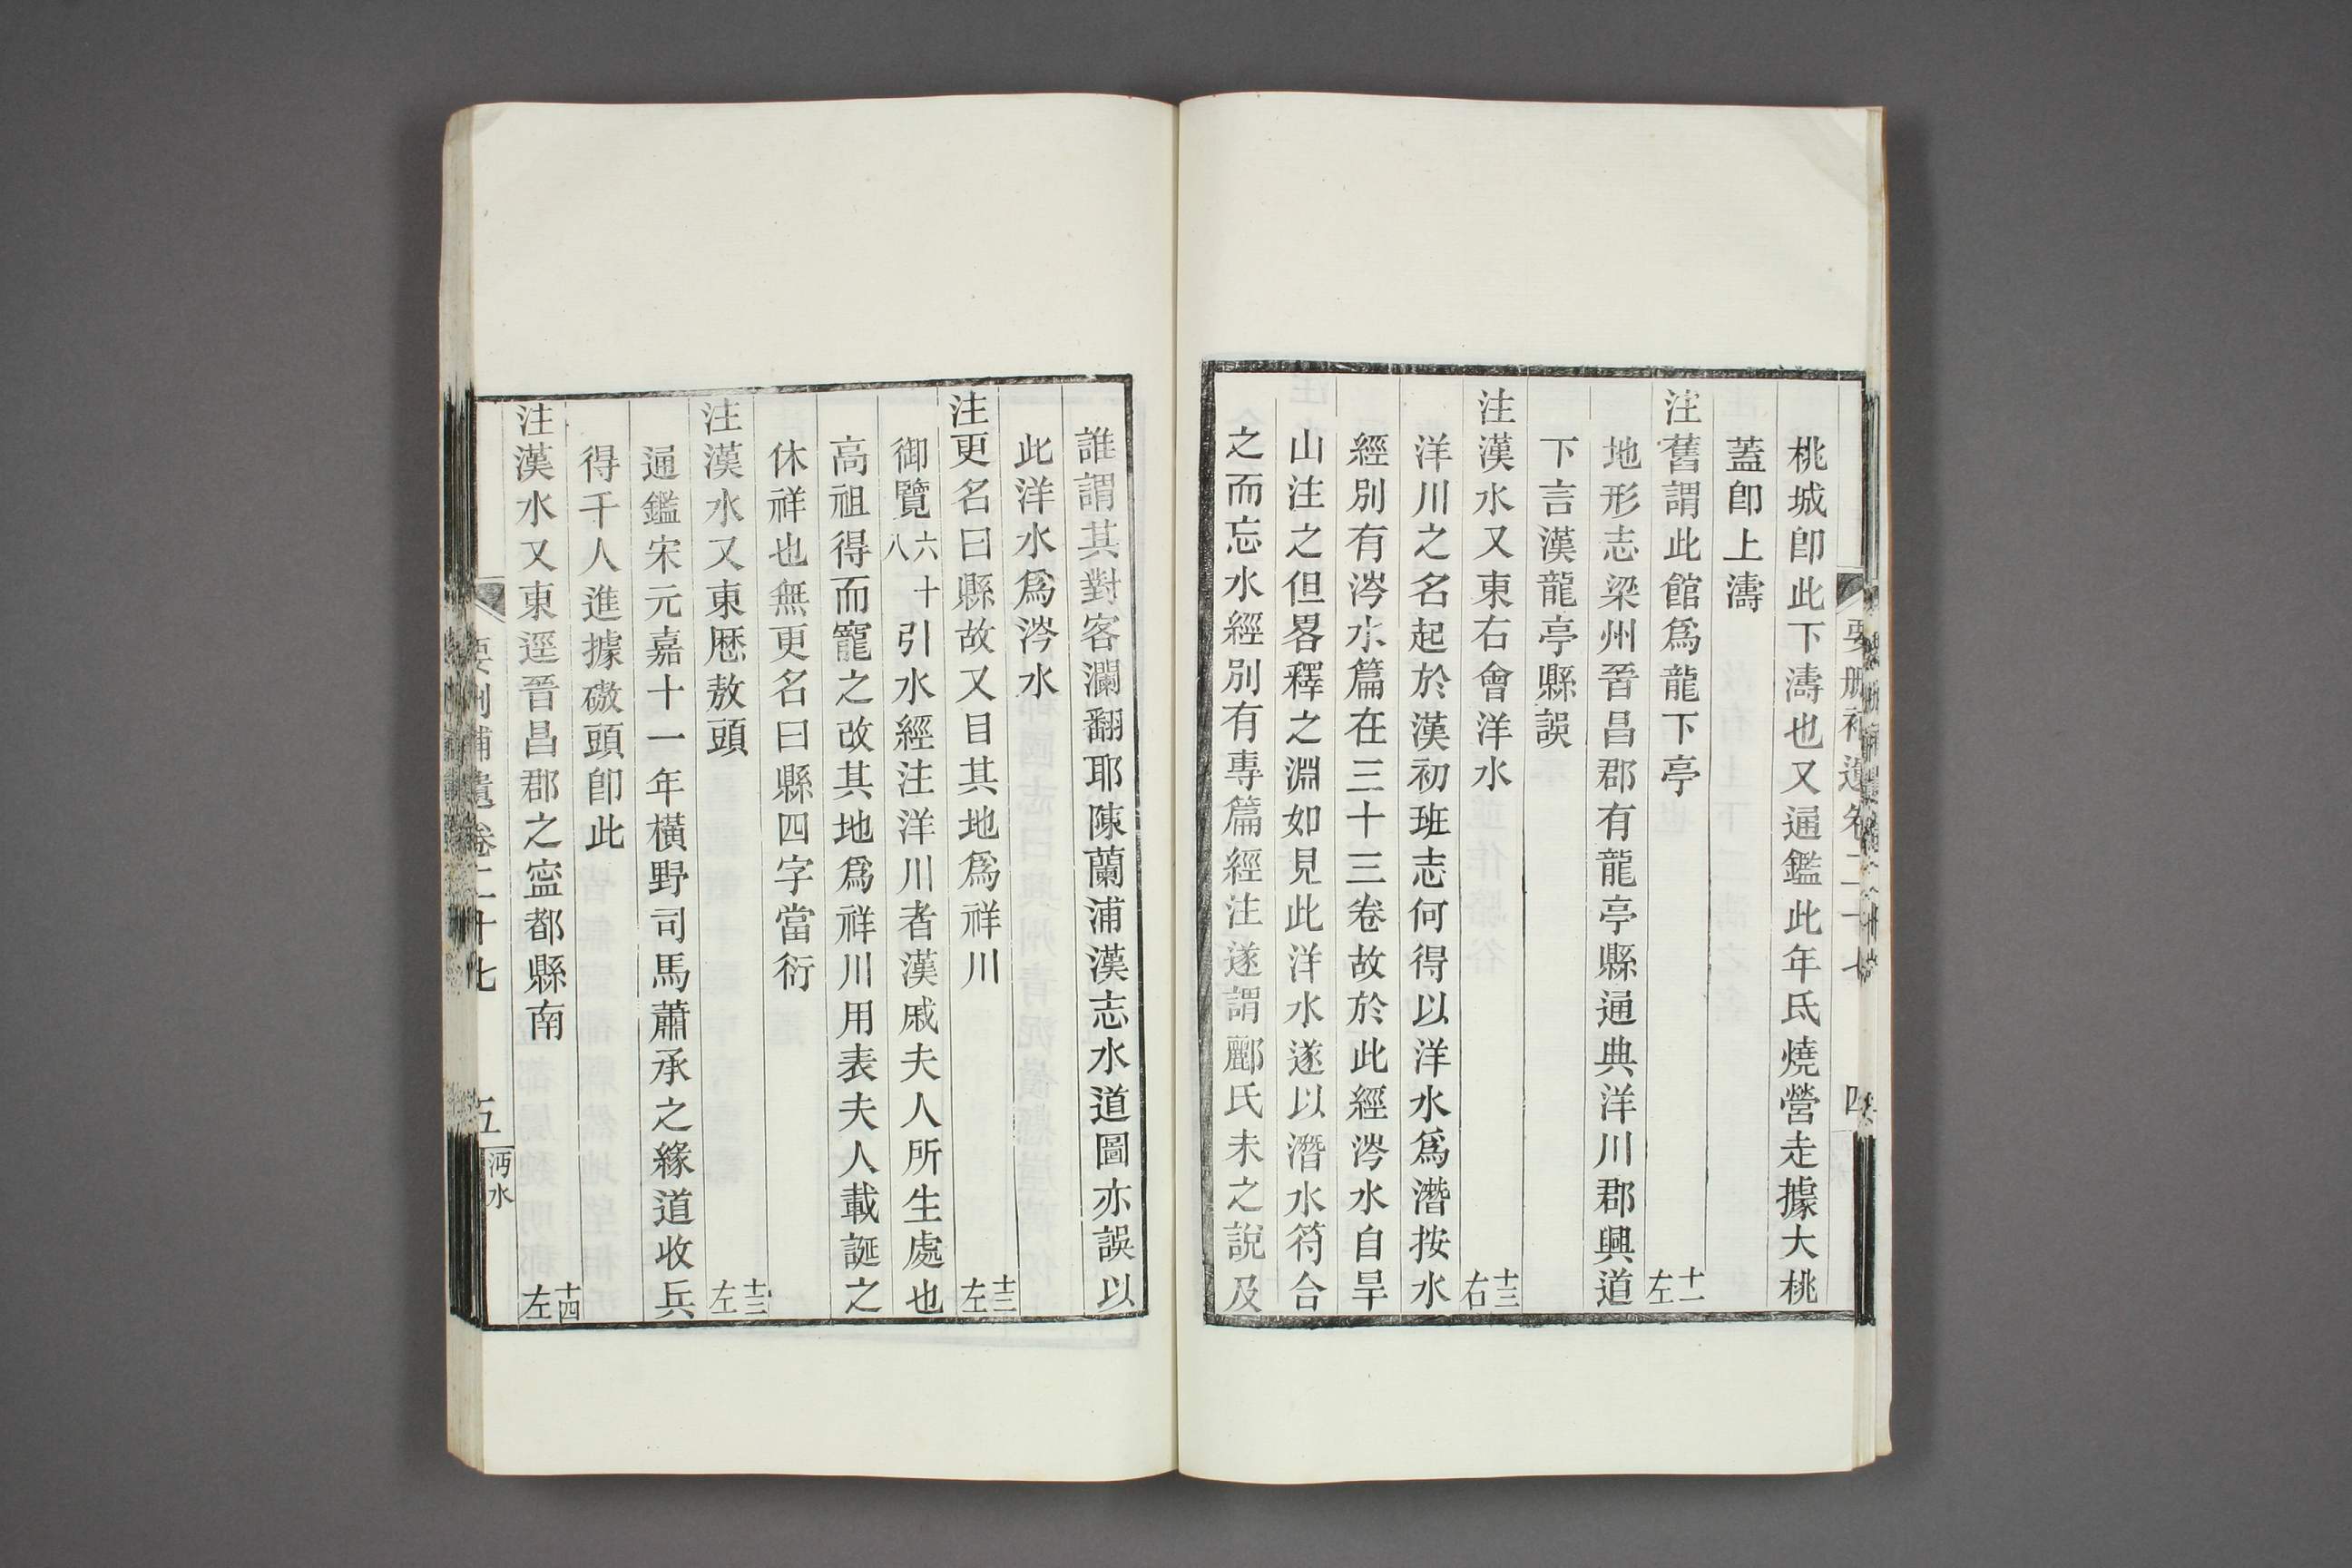 桃城卽此下濤也又通鑑此年氐燒營走據大桃
蓋卽上濤
注舊謂此館爲龍下亭 十一左
地形志梁州晉昌郡有龍亭縣通典洋川郡興道
下言漢龍亭縣誤
注漢水又東右會洋水 十三右
洋川之名起於漢初班志何得以洋水爲潛按水
經別有涔水篇在三十三卷故於此經涔水自旱
山注之但畧釋之淵如見此洋水遂以潛水符合
之而忘水經別有專篇經注遂謂酈氏未之説及
誰謂其對客瀾翻耶陳蘭浦漢志水道圖亦誤以
此洋水爲涔水
注更名曰縣故又目其地爲祥川 十三左
御覽六十八引水經注洋川者漢戚夫人所生處也
高祖得而寵之改其地爲祥川用表夫人載誕之
休祥也無更名曰縣四字當衍
注漢水又東歷敖頭 十三左
通鑑宋元嘉十一年橫野司馬蕭承之緣道收兵
得千人進據磝頭卽此
注漢水又東逕晉昌郡之寍都縣南 十四左
要刪補遺卷二十七 五 沔水